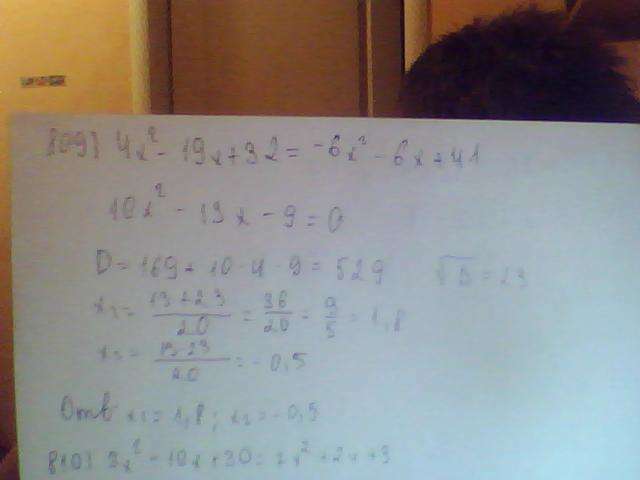 809) 4x² - 19x + 32 = -6x² - 6x + 41
10x² - 13x - 9 = 0
D = 169 + 10 · 4 · 9 = 529 √D = 23
x₁ = 13+23/20 = 36/20 = 9/5 = 1,8
x₂ = 13-23/20 = -0,5
Отв x₁ = 1,8; x₂ = -0,5
810) 3x² - 10x + 30 = 2x² + 2x + 3